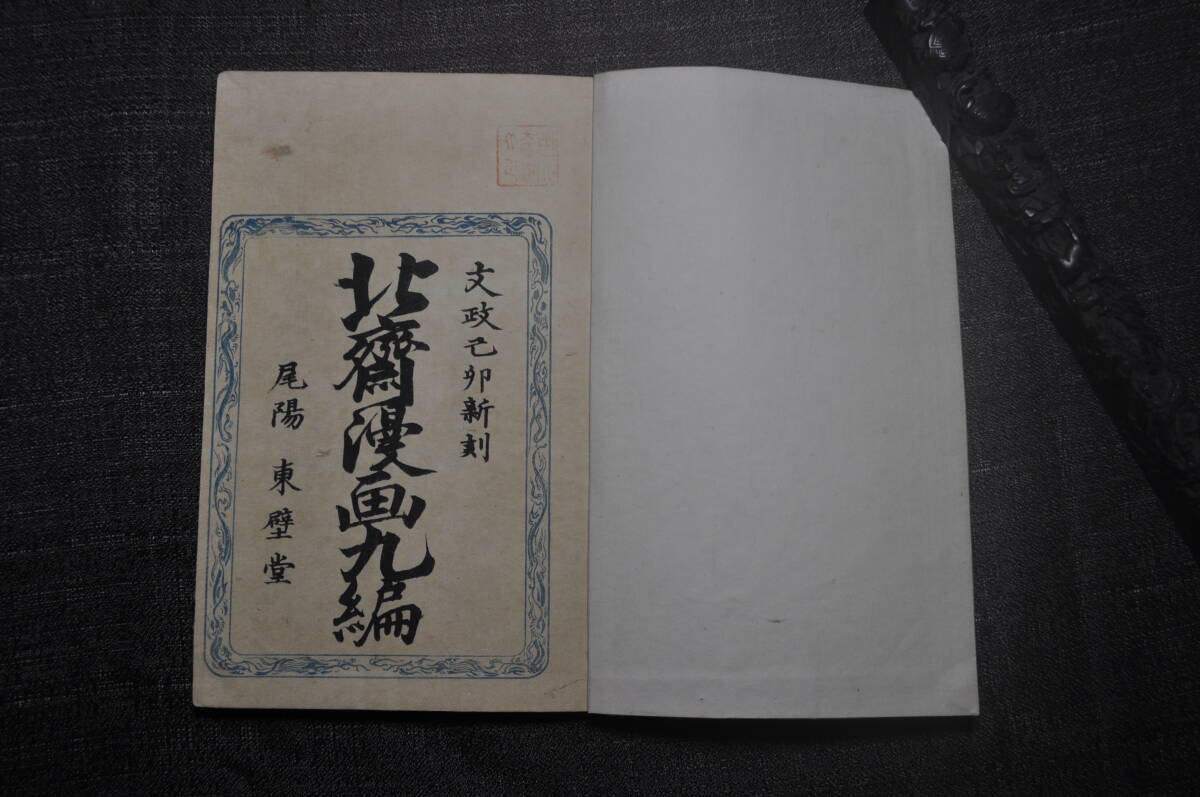 文政己卯新刻
北齋漫画九編
尾陽 東壁堂